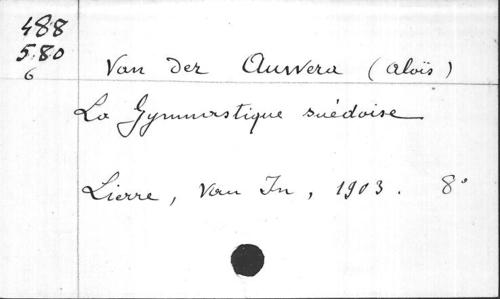 488
580
6
Van der Auwera (Aloïs)
La Gymnastique suédoise
Lierre, Van In, 1903. 8°